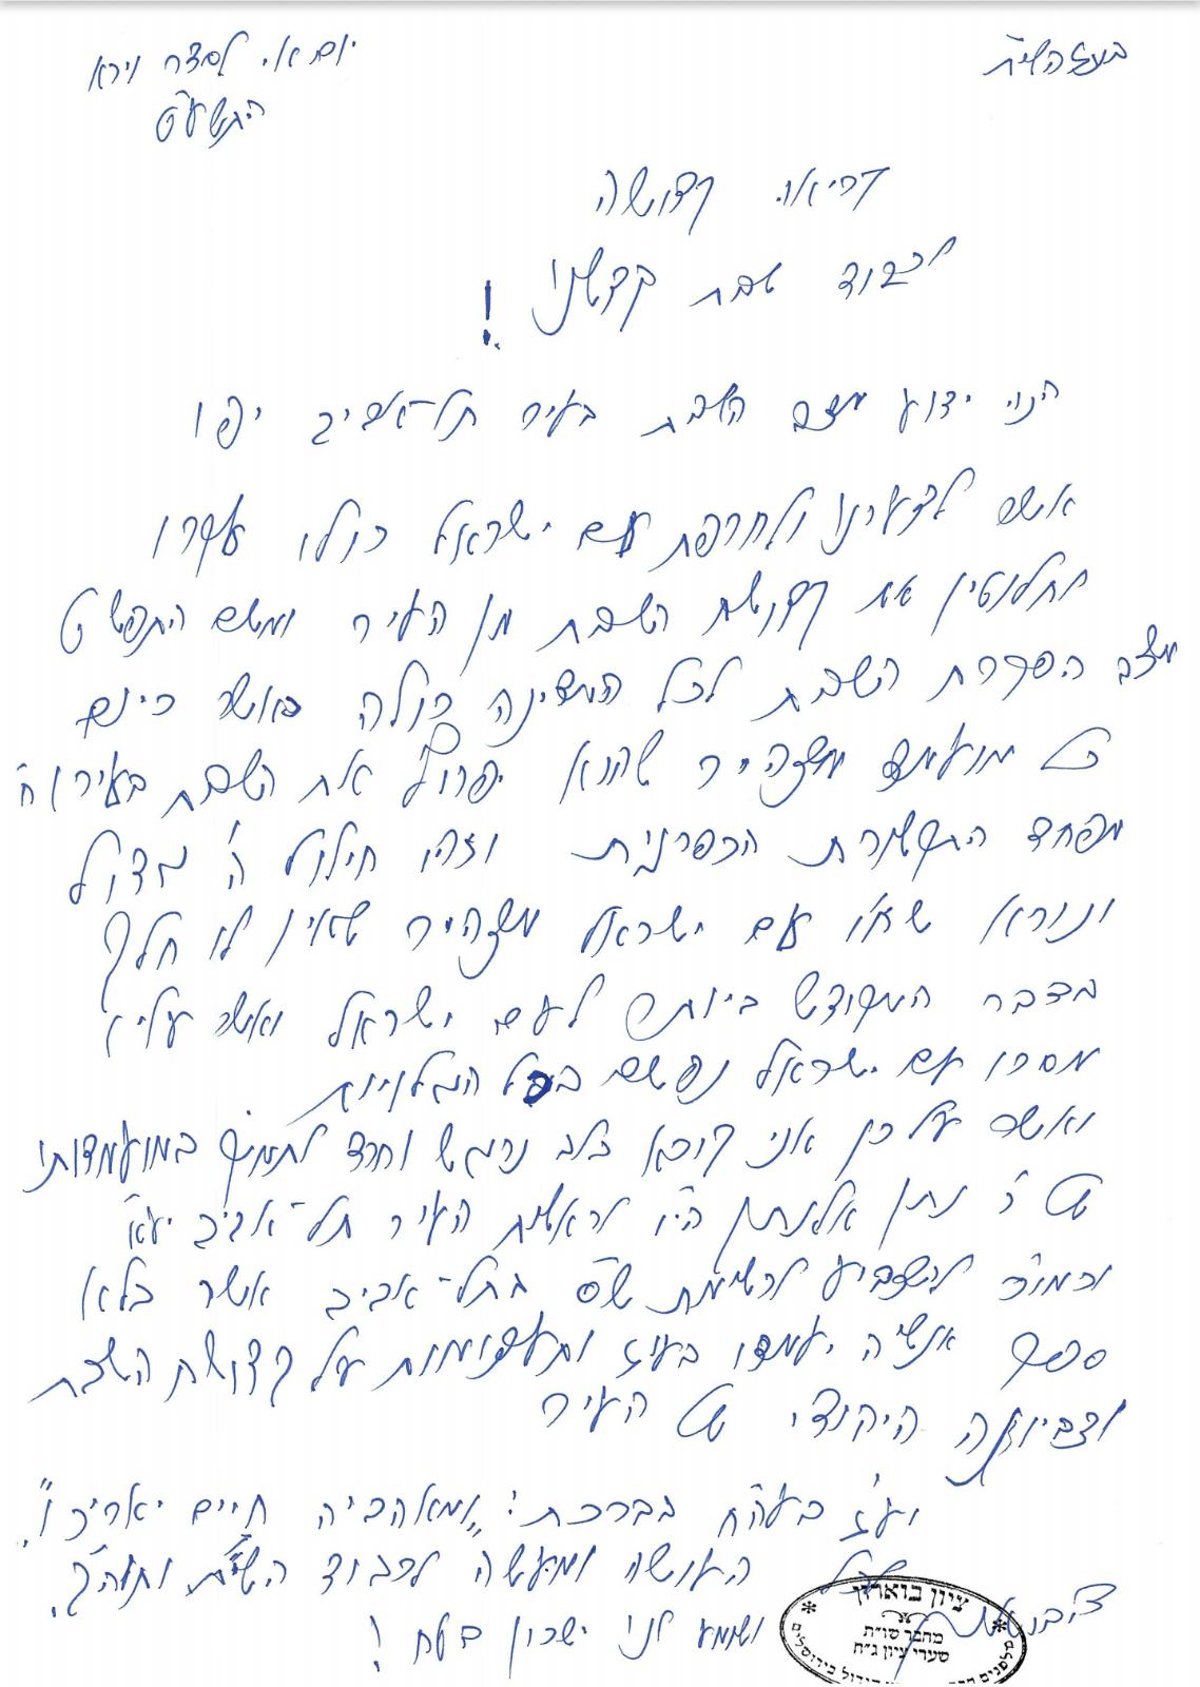 בעזהשי"ת
יום א', לסדר וירא
התשע"ט
קריאה קדושה
לכבוד שבת קדשנו!
הנה ידוע מצב השבת בעיר תל-אביב יפו
אשר לצערנו ולחרפת עם ישראל כולו עקרו
לחלוטין את קדושת השבת מן העיר ומשם התפשט
מצב הפקרת השבת לכל המדינה כולה כאשר כיום
כל מועמד מצהיר שהוא יפרוץ את השבת בעירו ח"ו
מפחד התקשורת הכפרנית וזהו חילול ה' גדול
ונורא שאיו עם ישראל מצהיר שאין לו חלק
בדבר המקודש ביותר לעם ישראל ואשר עליו
מסרו עם ישראל נפשם בכל הגלויות.
ואשר על כן אני קורא בלב נרגש וחרד לתמוך במועמדותו
של ר' נתן אלנתן הי"ו לראשות העיר תל-אביב יע"א
וכמו"כ להצביע לרשימת ש"ס בתל-אביב אשר בלא
ספק אנשיה יעמדו בעוז ותעצומות על קדושת השבת
וצביונה היהודי של העיר
וע"ז בעה"ח בברכת: "ומאהביה חיים יאריכו",
העושה ומעשה לכבוד השי"ת ותוה"ק.
ושומע לנו ישכון בטח!
ציון בוארון
מחבר שו"ת
שערי ציון ג"ח